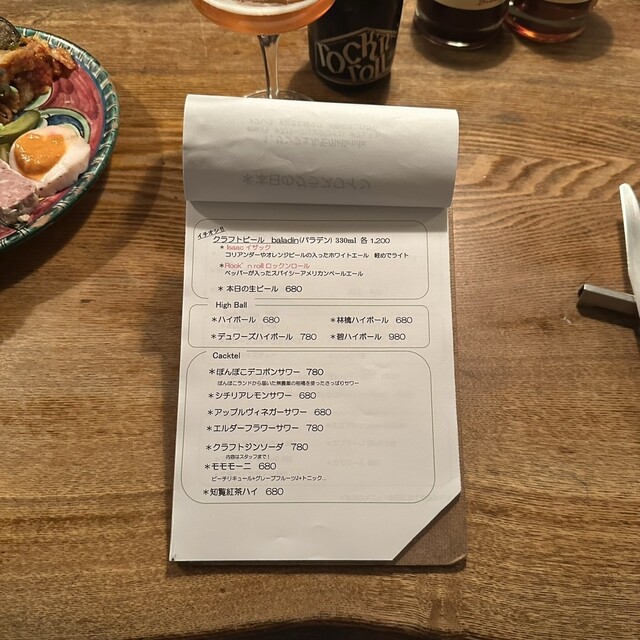 ROCK'N
ROLL
イチオシ!!
クラフトビール baladin(バラデン) 330ml 各 1,200
* Isaac イザック
コリアンダーやオレンジピールの入ったホワイトエール 軽めでライト
*Rock'n roll ロックンロール
ペッパーが入ったスパイシーアメリカンペールエール
* 本日の生ビール 680
High Ball
*ハイボール 680 *林檎ハイボール 680
*デュワーズハイボール 780 *碧ハイボール 980
Cacktel
*ぽんぽこデコポンサワー 780
ぽんぽこランドから届いた無農薬の柑橘を使ったさっぱりサワー
*シチリアレモンサワー 680
*アップルヴィネガーサワー 680
*エルダーフラワーサワー 780
*クラフトジンソーダ 780
内容はスタッフまで!
*モモモーニ 680
ピーチリキュール+グレープフルーツJ+トニック...
*知覧紅茶ハイ 680